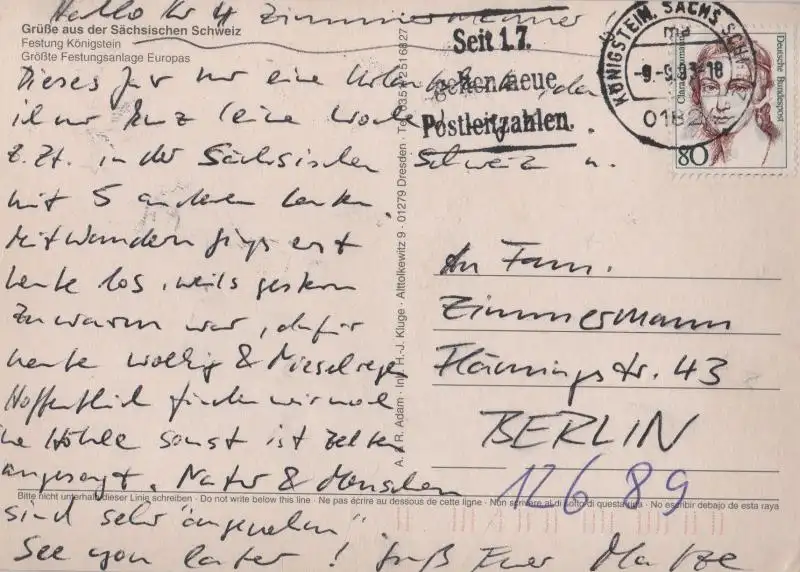 Hallo Ihr 4 Zimmermänner
Grüße aus der Sächsischen Schweiz
Festung Königstein
Größte Festungsanlage Europas
Dieses Jar nur eine Urlaubskarte, da
ich nur kurz (eine Woche)
z. Zt. in der Sächsischen Schweiz u.
mit 5 anderen Leuten.
Mit Wandern gings erst
heute los, weils gestern
zu warm war, dafür
heute wolkig & Nieselregen
Hoffentlich finden wir mal
ne Höhle sonst ist Zelten
angesagt. Natur & Menschen
sind sehr "angenehm".
See you later! Gruß Euer Matze
A. & R. Adam · Inh. H.-J. Kluge · Alttolkewitz 9 · 01279 Dresden · Tel. 0351/2516827
Seit 1.7.
gelten neue
Postleitzahlen.
KÖNIGSTEIN, SÄCHS SCHWEIZ
ma
-9.-9.93-18
0182
Deutsche Bundespost
Clara Schumann
80
An Fam.
Zimmermann
Flämingstr. 43
BERLIN
12689
Bitte nicht unterhalb dieser Linie schreiben · Do not write below this line · Ne pas écrire au dessous de cette ligne · Non scrivere al di sotto di questa riga · No escribir debajo de esta raya